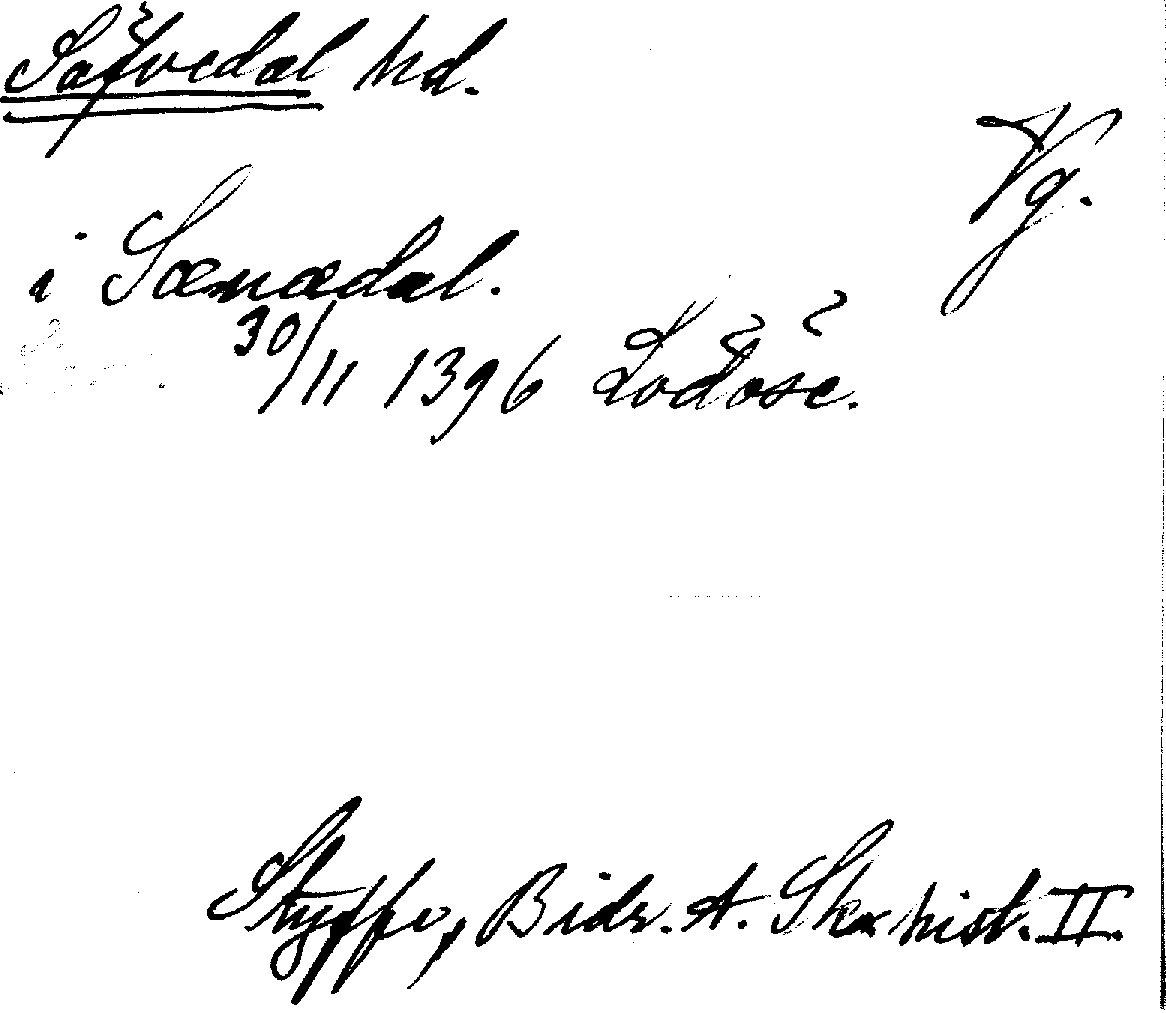 Säfvedal hd.
Vg.
i Sæuædal.
30/11 1396 Lödöse.
Styffe, Bidr. t. Skx hist. II.